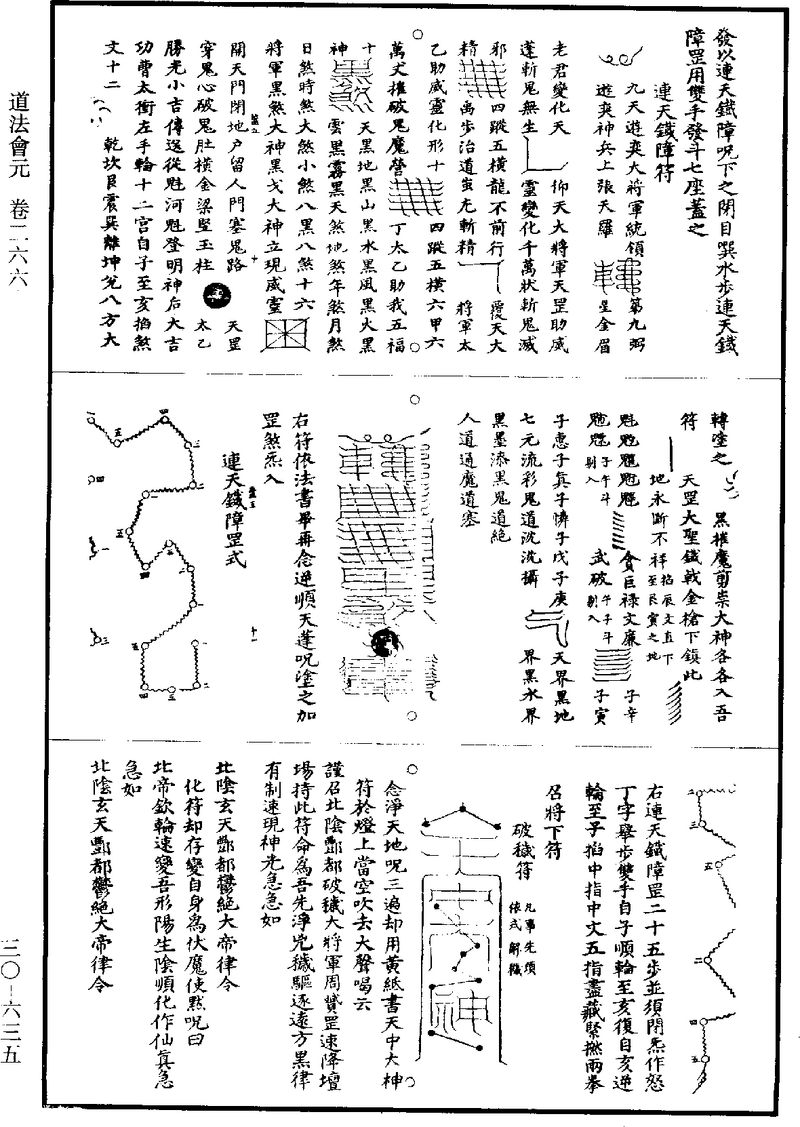 發以連天鐵障呪下之閉目噀水步連天鐵
障罡用雙手發斗七座蓋之
連天鐵障符
九天遊奕大將軍統領 第九弼
遊奕神兵上張天羅 星金眉
老君變化天 仰天大將軍天罡助威
蓬斬鬼無生 靈變化千萬狀斬鬼滅
邪 四蹤五橫龍不前行 覆天大
精 禹步治道蚩尤斬精 將軍太
乙助威靈化形十 四蹤五橫六甲六
萬丈摧破鬼魔營 丁太乙助我五福
十 天黑地黑山黑水黑風黑火黑
神 雲黑霧黑天煞地煞年煞月煞
日煞時煞大煞小煞八黑八煞十六
將軍黑煞大神黑戈大神立現威靈
開天門閉地戶留人門塞鬼路 天罡
穿鬼心破鬼肚橫金梁竪玉柱 太乙
勝光小吉傳送從魁河魁登明神后大吉
功曹太衝左手輪十二宮自子至亥掐煞
文十二 乾坎艮震巽離坤兌八方大
轉塗之 黑摧魔剪祟大神各各入吾
符 天罡大聖鐵戟金槍下鎮此
地永斷不祥 掐辰文直下
至艮寅之地
子午斗 貪巨祿文廉 子辛
剔入 武破 午子斗 子寅
剔入
子惠子真子憐子戊子庚 天界黑地
七元流彩鬼道沈沈攝 界黑水界
黑墨漆黑鬼道絕
人道通魔道塞
右符依法書畢再念逆順天蓬呪塗之加
罡煞炁入
連天鐵障罡式
右連天鐵障罡二十五步並須閉炁作怒
丁字舉步雙手自子順輪至亥復自亥逆
輪至子掐中指中文五指盡藏緊撚兩拳
召將下符
破穢符 凡事先須
依式解穢
念淨天地呪三遍却用黃紙書天中大神
符於燈上當空吹去大聲喝云
謹召北陰酆都破穢大將軍周贇罡速降壇
場持此符命為吾先淨兇穢驅逐遠方黑律
有制速現神光急急如
北陰玄天酆都鬱絕大帝律令
化符却存變自身為伏魔使默呪曰
北帝欽輪速變吾形陽生陰順化作仙真急
急如
北陰玄天酆都鬱絕大帝律令
道法會元 卷二六六
三〇-六三五